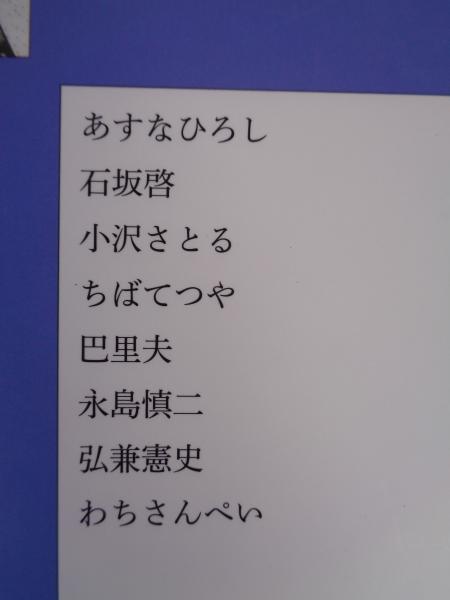 あすなひろし
石坂啓
小沢さとる
ちばてつや
巴里夫
永島慎二
弘兼憲史
わちさんぺい